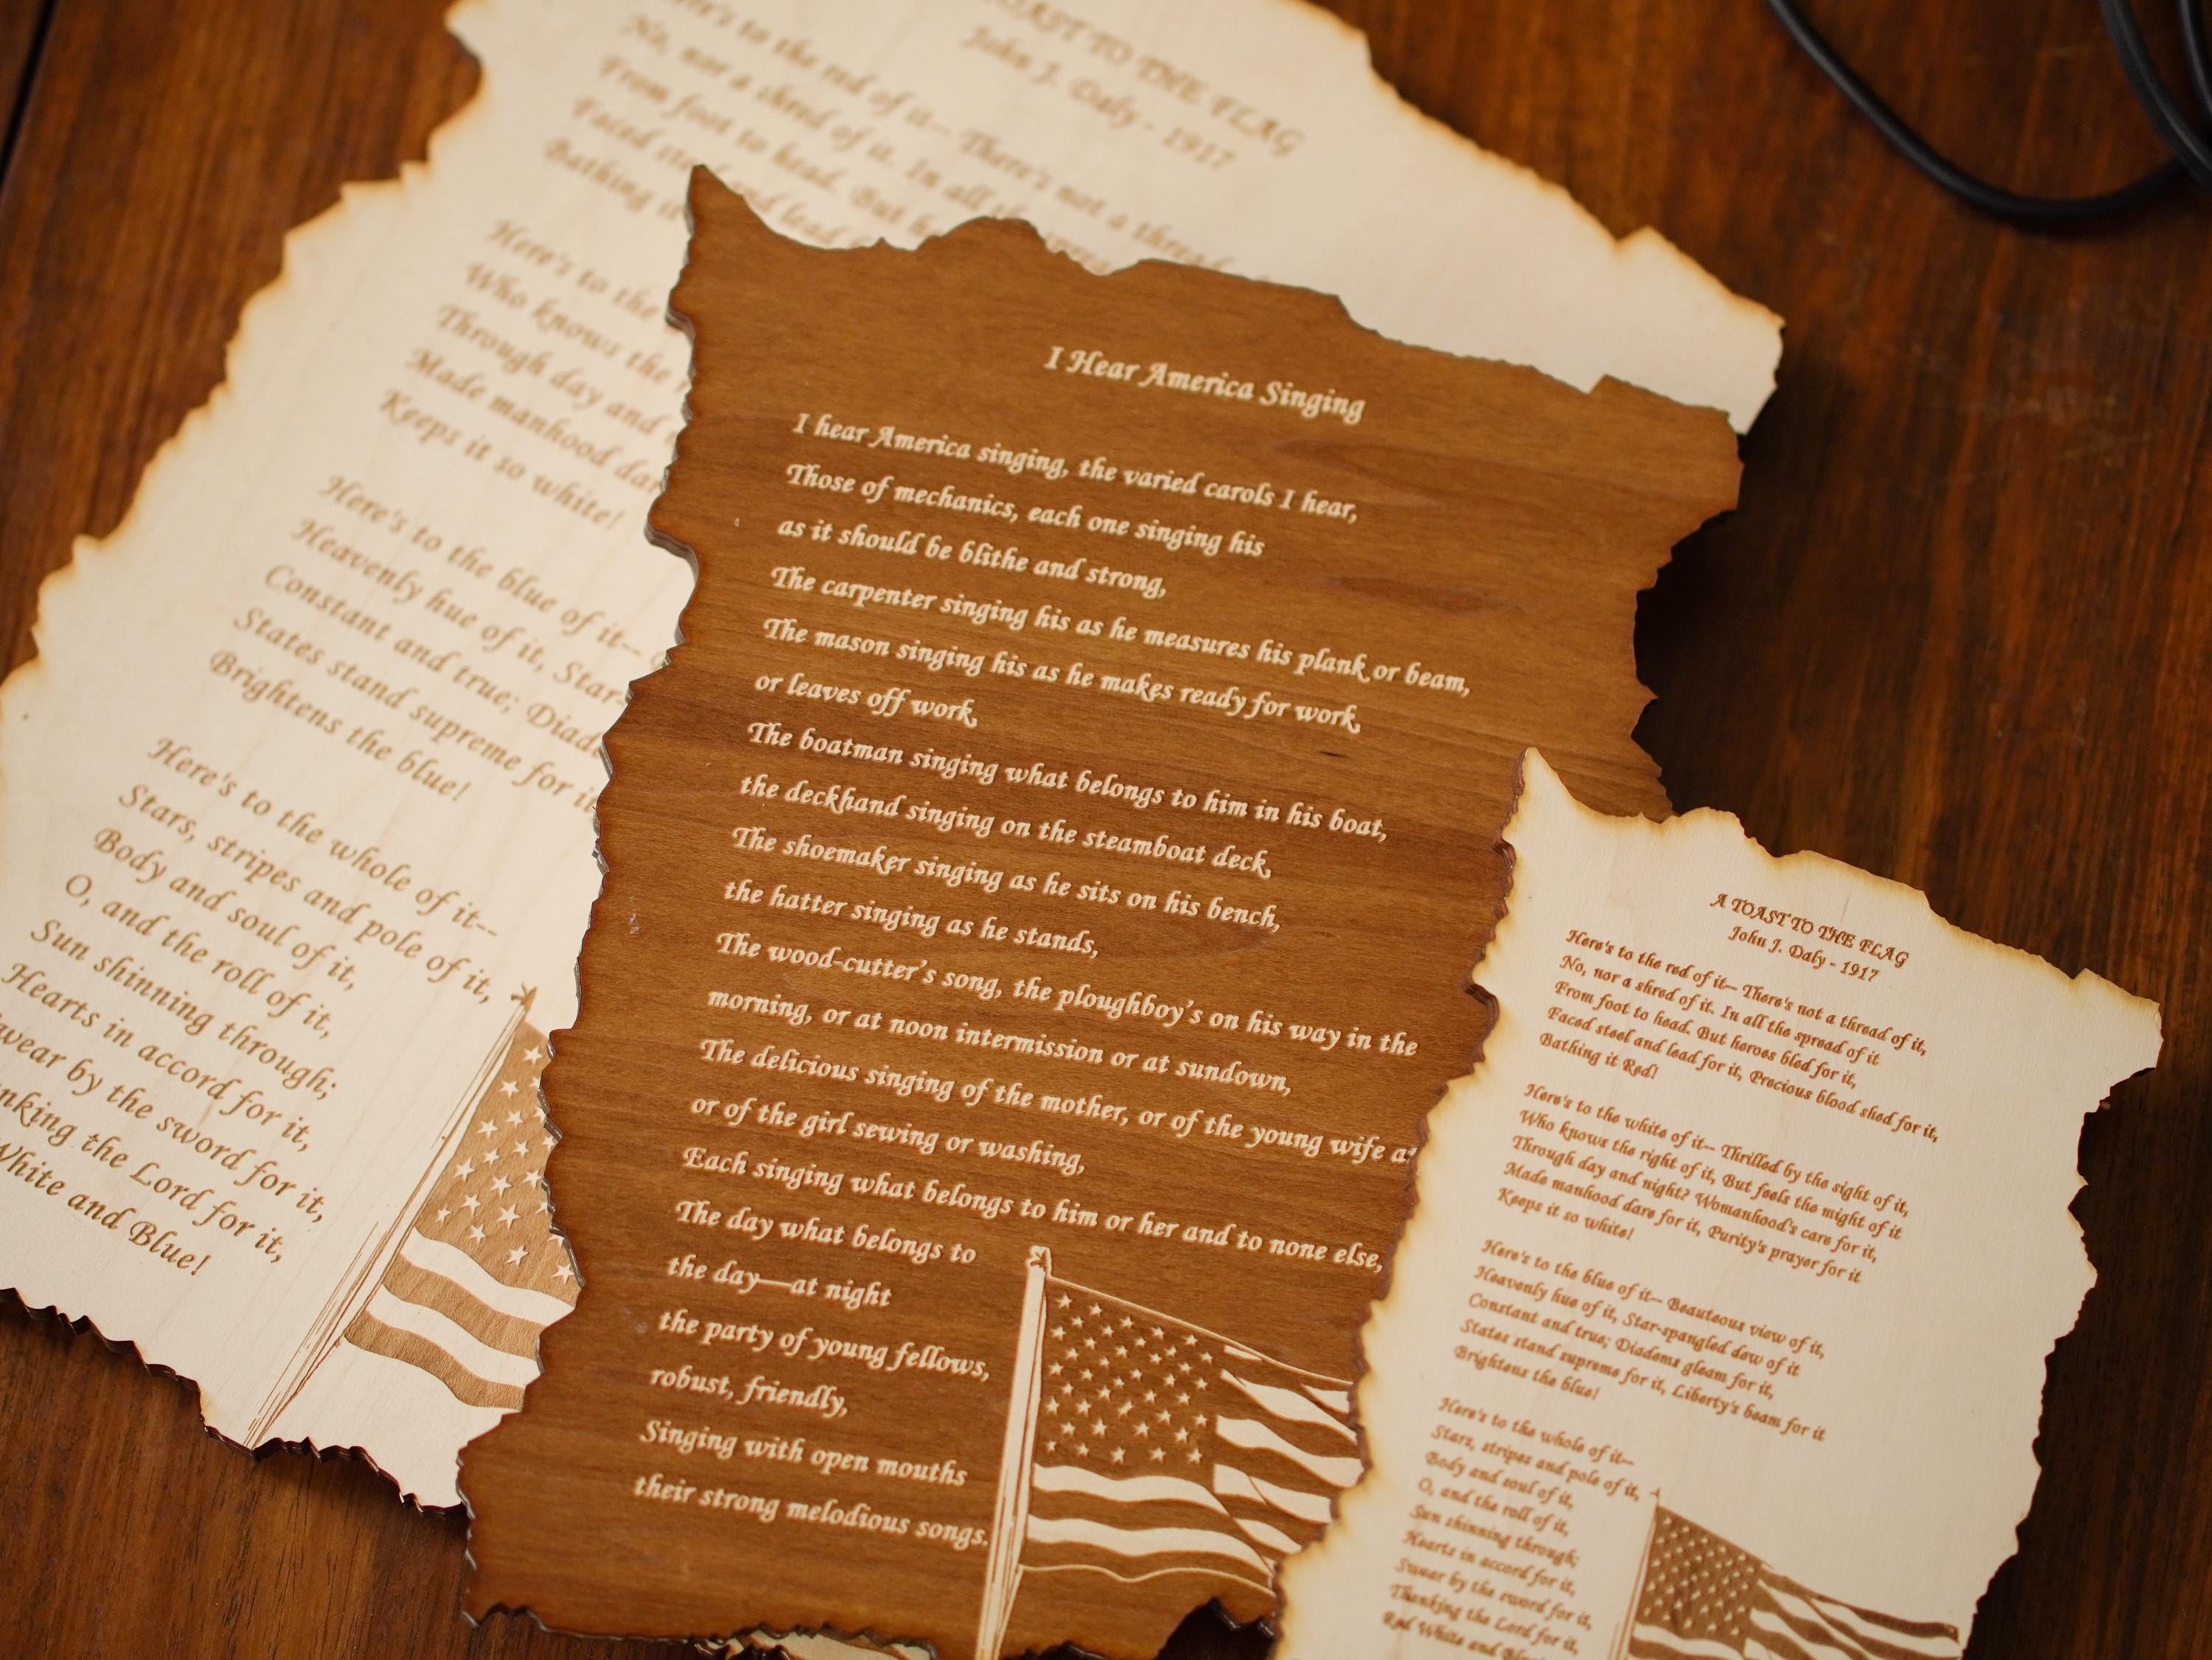 TOAST TO THE FLAG
John J. Daly - 1917
Here's to the red of it-- There's not a thread
No, nor a shred of it. In all the spread
From foot to head. But
Faced and lead
Bathing it
Here's to the
Who knows the
Through day and
Made manhood
Keeps it so white!
Here's to the blue of it--
Heavenly hue of it,
Constant and true;
States stand supreme for it
Brightens the blue!
Here's to the whole of it--
Stars, stripes and pole of it,
Body and soul of it,
O, and the roll of it,
Sun shinning through;
Hearts in accord for it,
by the sword for it,
the Lord for it,
White and Blue!
I Hear America Singing
I hear America singing, the varied carols I hear,
Those of mechanics, each one singing his
as it should be blithe and strong,
The carpenter singing his as he measures his plank or beam,
The mason singing his as he makes ready for work,
or leaves off work,
The boatman singing what belongs to him in his boat,
the deckhand singing on the steamboat deck,
The shoemaker singing as he sits on his bench,
the hatter singing as he stands,
The wood-cutter's song, the ploughboy's on his way in the
morning, or at noon intermission or at sundown,
The delicious singing of the mother, or of the young wife at
or of the girl sewing or washing,
Each singing what belongs to him or her and to none else,
The day what belongs to
the day—at night
the party of young fellows,
robust, friendly,
Singing with open mouths
their strong melodious songs.
A TOAST TO THE FLAG
John J. Daly - 1917
Here's to the red of it-- There's not a thread of it,
No, nor a shred of it. In all the spread of it
From foot to head. But heroes bled for it,
Faced steel and lead for it, Precious blood shed for it,
Bathing it Red!
Here's to the white of it-- Thrilled by the sight of it,
Who knows the right of it, But feels the might of it
Through day and night? Womanhood's care for it,
Made manhood dare for it, Purity's prayer for it
Keeps it so white!
Here's to the blue of it-- Beauteous view of it,
Heavenly hue of it, Star-spangled dew of it
Constant and true; Diadems gleam for it,
States stand supreme for it, Liberty's beam for it
Brightens the blue!
Here's to the whole of it--
Stars, stripes and pole of it,
Body and soul of it,
O, and the roll of it,
Sun shinning through;
Hearts in accord for it,
Swear by the sword for it,
Thanking the Lord for it,
Red White and